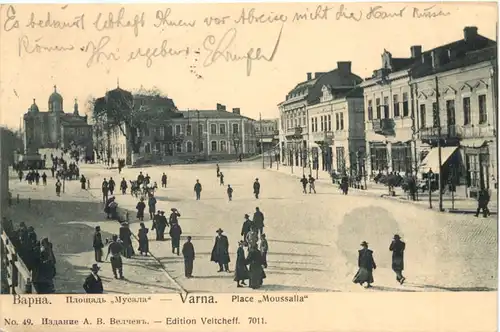 Es bedauert lebhaft Ihnen vor Abreise nicht die Hand küssen
können Ihr ergebener
Варна. Площадь „Мусала“ — Varna. Place „Moussalla“
No. 49. Издание А. В. Велчевъ. — Edition Veitcheff. 7011.